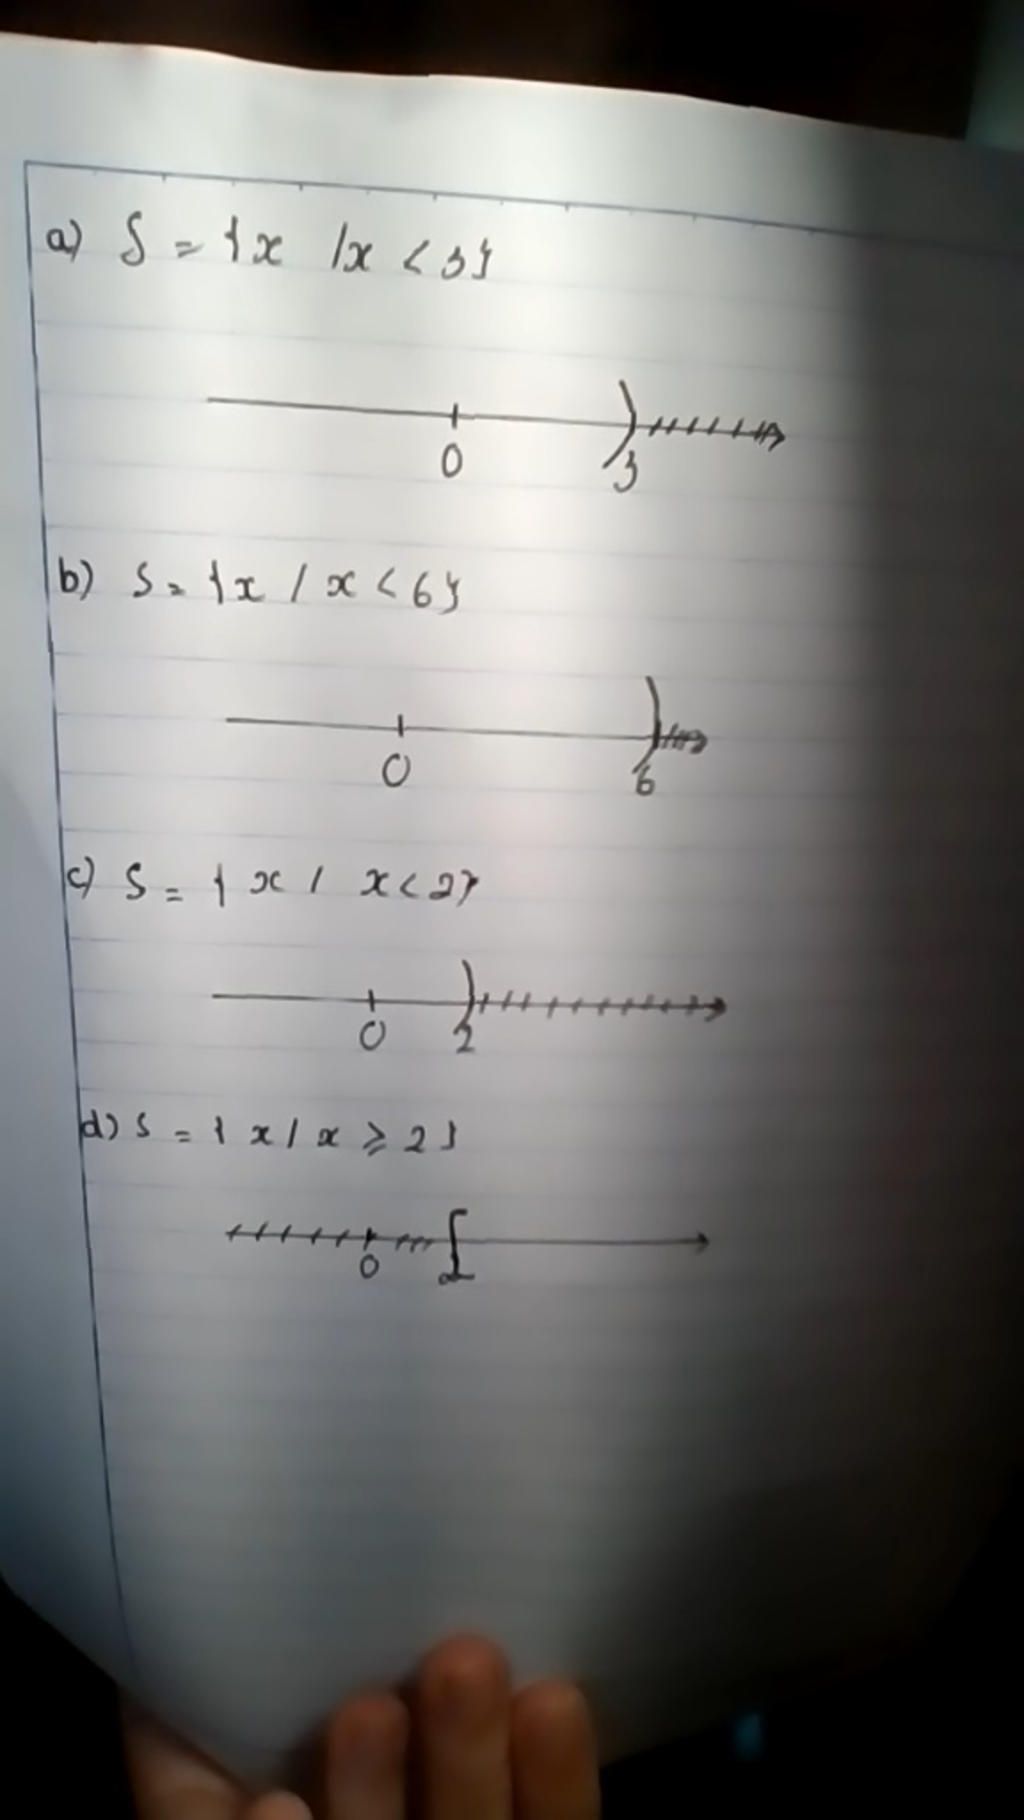 a) S = {x /x < 3}
0 3
b) S = {x / x < 6}
0 6
c) S = { x / x < 2}
0 2
d) S = { x / x ⩾ 2 }
0 2